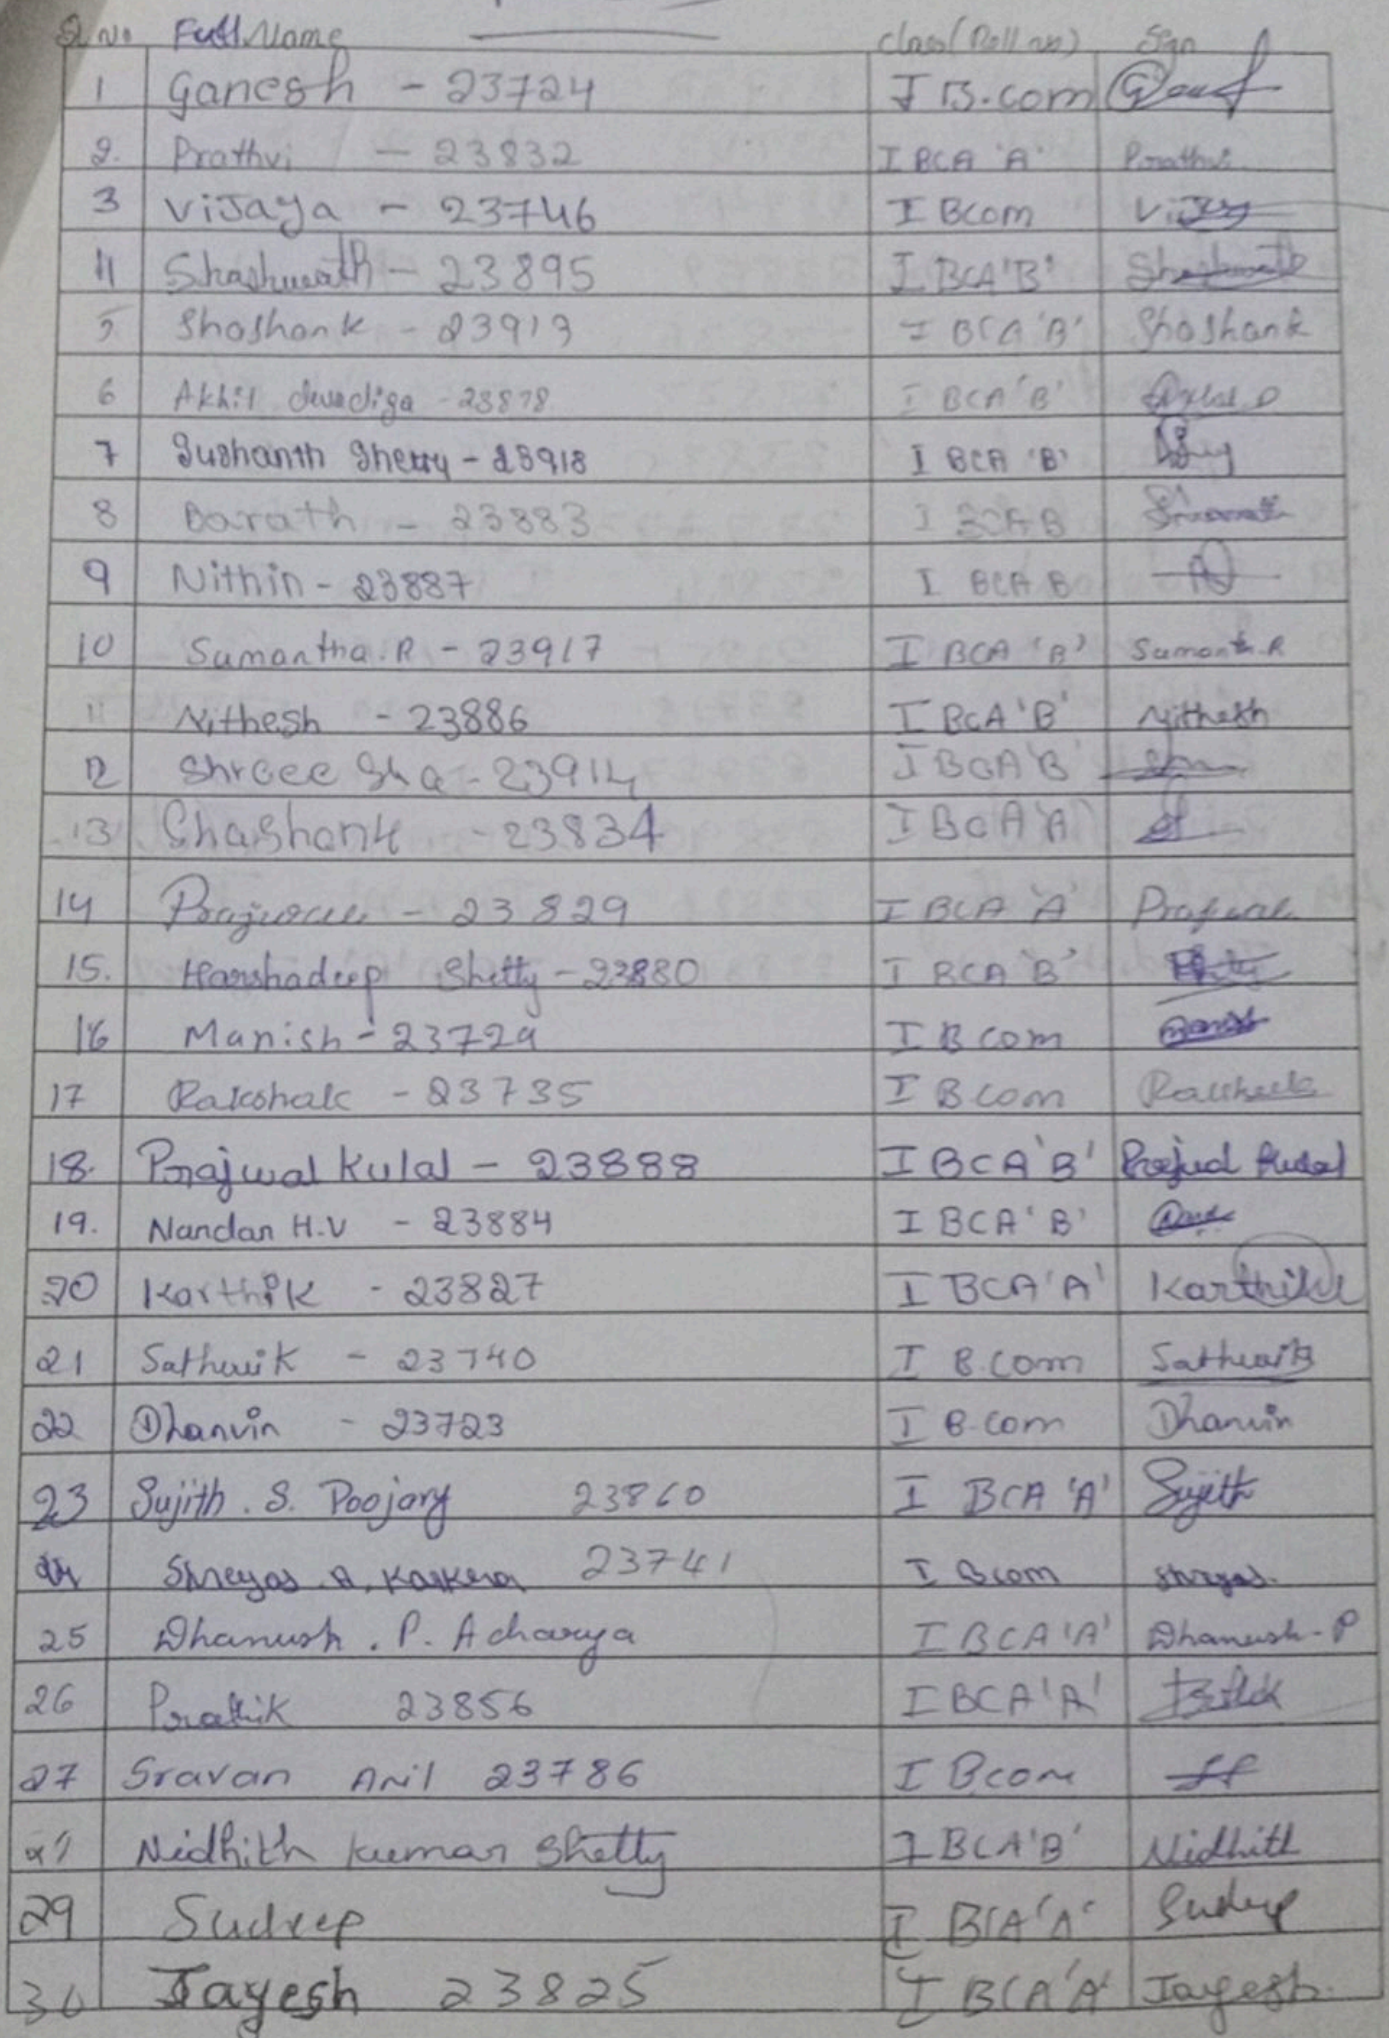 Sl.No Full Name Class (Roll no) Sign
1 Ganesh - 23724 I B.com
2. Prathvi - 23832 I BCA 'A' Prathvi
3 Vijaya - 23746 I Bcom
4 Shashwath - 23895 I BCA 'B' Shashwath
5 Shashank - 23913 I BCA 'B' Shashank
6 Akhil devadiga - 23878 I BCA 'B'
7 Sushanth Shetty - 23918 I BCA 'B'
8 Darath - 23883 I BCA B
9 Nithin - 23887 I BCA B
10 Sumantha.R - 23917 I BCA 'B' Sumanth.R
11 Nithesh - 23886 I BCA 'B' Nithesh
12 Shreesha - 23914 I BCA 'B'
13 Shashank - 23834 I BCA 'A'
14 Prajwal - 23829 I BCA 'A' Prajwal
15. Harshadeep Shetty - 23880 I BCA 'B'
16 Manish - 23729 I B com
17 Rakshak - 23735 I B com
18. Prajwal Kulal - 23888 I BCA 'B' Prajwal Kulal
19. Nandan H.V - 23884 I BCA 'B'
20 Karthik - 23827 I BCA 'A' Karthik
21 Sathwik - 23740 I B.com Sathwik
22 Dhanvin - 23723 I B.com Dhanvin
23 Sujith . S. Poojary 23860 I BCA 'A' Sujith
24 Shreyas .A. Karkera 23741 I Bcom Shreyas.
25 Dhanush . P. Acharya I BCA 'A' Dhanush-P
26 Prathik 23856 I BCA 'A'
27 Sravan Anil 23786 I Bcom
Nidhith Kumar Shetty I BCA 'B' Nidhith
29 Sudeep I BCA 'A' Sudeep
30 Jayesh 23825 I BCA 'A' Jayesh.